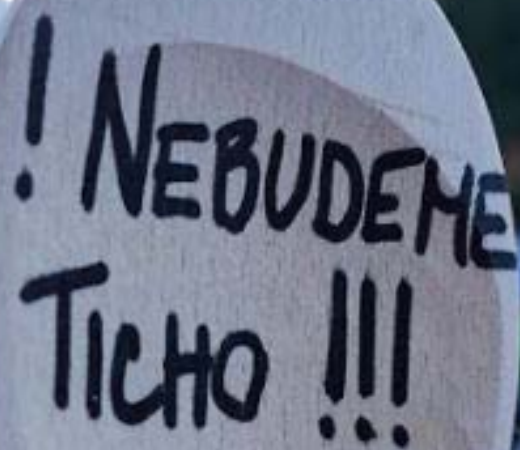 ! NEBUDEME
TICHO !!!